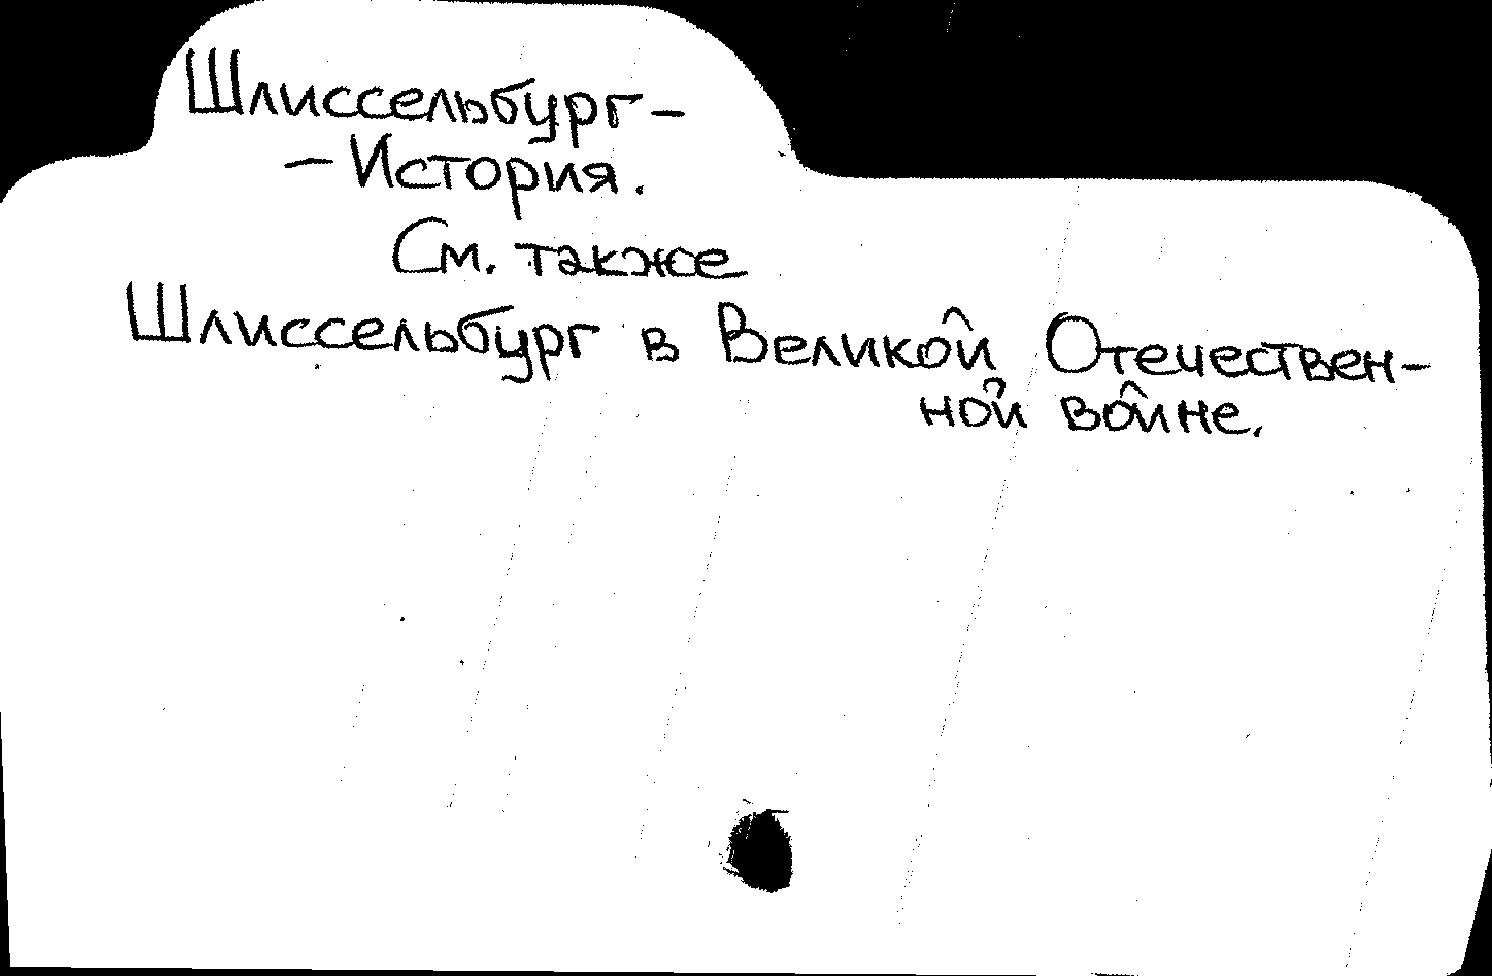 Шлиссельбург-
- История.
См. также
Шлиссельбург в Великой Отечествен-
ной войне.